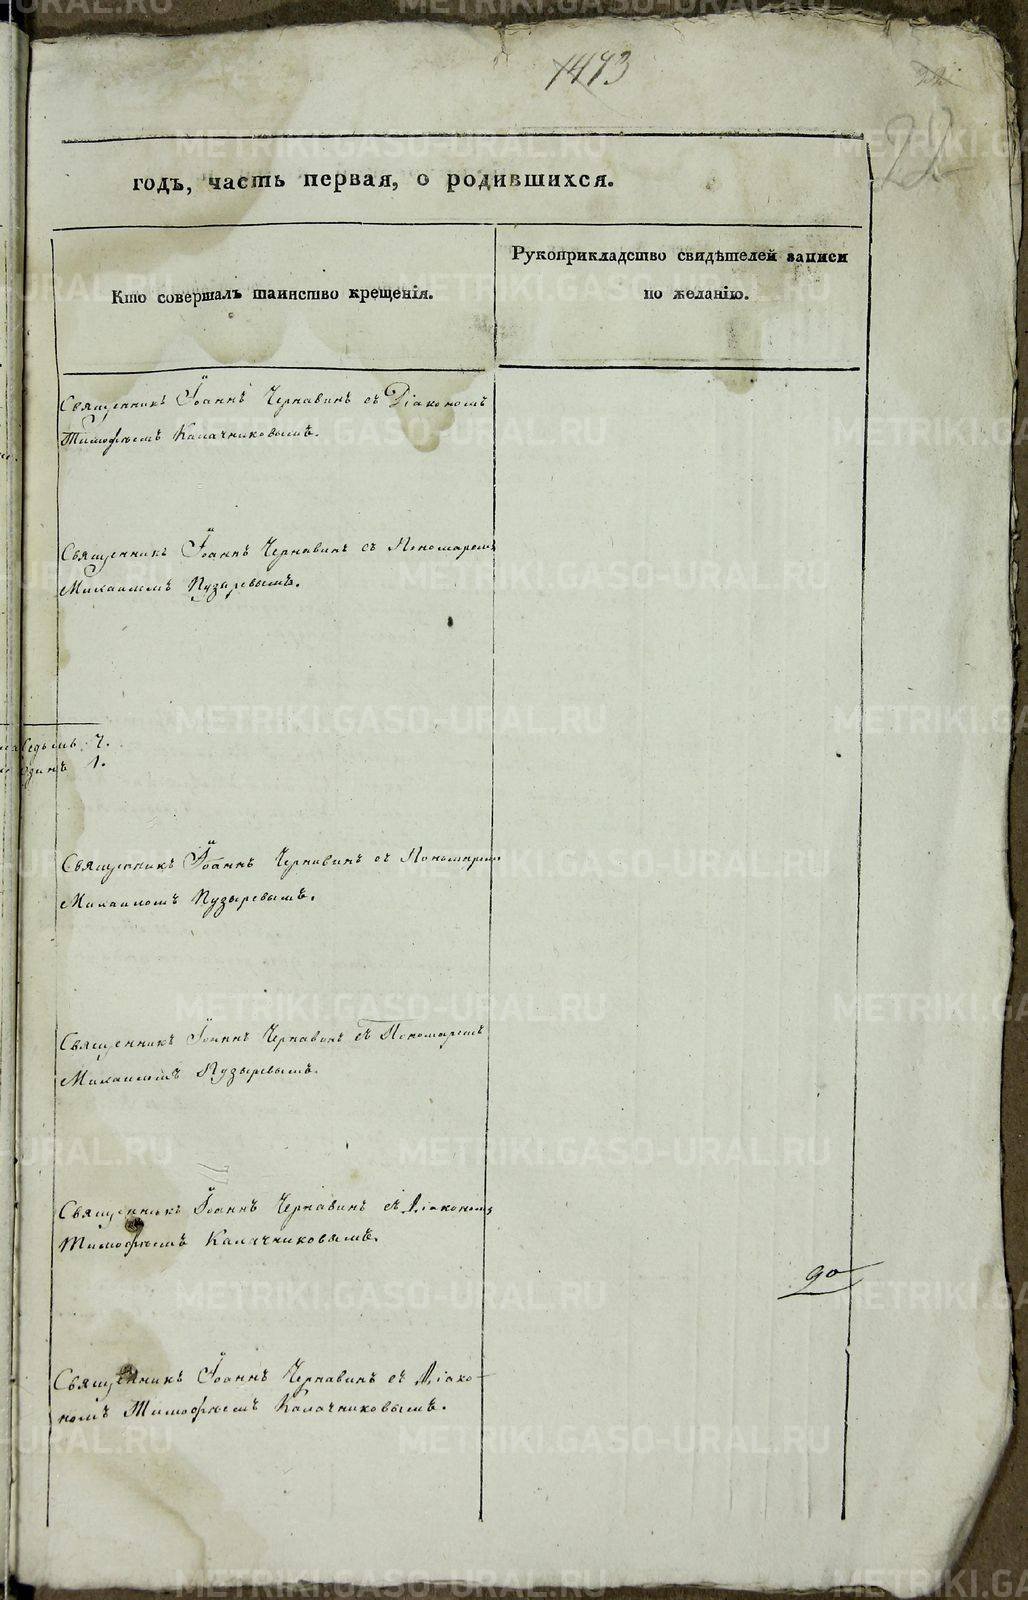 1493
22
22
годъ, часть первая, о родившихся.
Кто совершалъ таинство крещенія.
Рукоприкладство свидѣтелей записи
по желанію.
Священникъ Іоаннъ Чернавинъ съ Діакономъ
Тимофѣемъ Калачниковымъ.
Священникъ Іоаннъ Чернавинъ съ Пономаремъ
Михаиломъ Пузыревымъ.
7.
1.
Священникъ Іоаннъ Чернавинъ съ Пономаремъ
Михаиломъ Пузыревымъ.
Священникъ Іоаннъ Чернавинъ съ Пономаремъ
Михаиломъ Пузыревымъ.
Священникъ Іоаннъ Чернавинъ съ Діакономъ
Тимофѣемъ Калачниковымъ.
90
Священникъ Іоаннъ Чернавинъ съ Діако-
номъ Тимофѣемъ Калачниковымъ.
METRIKI.GASO-URAL.RU